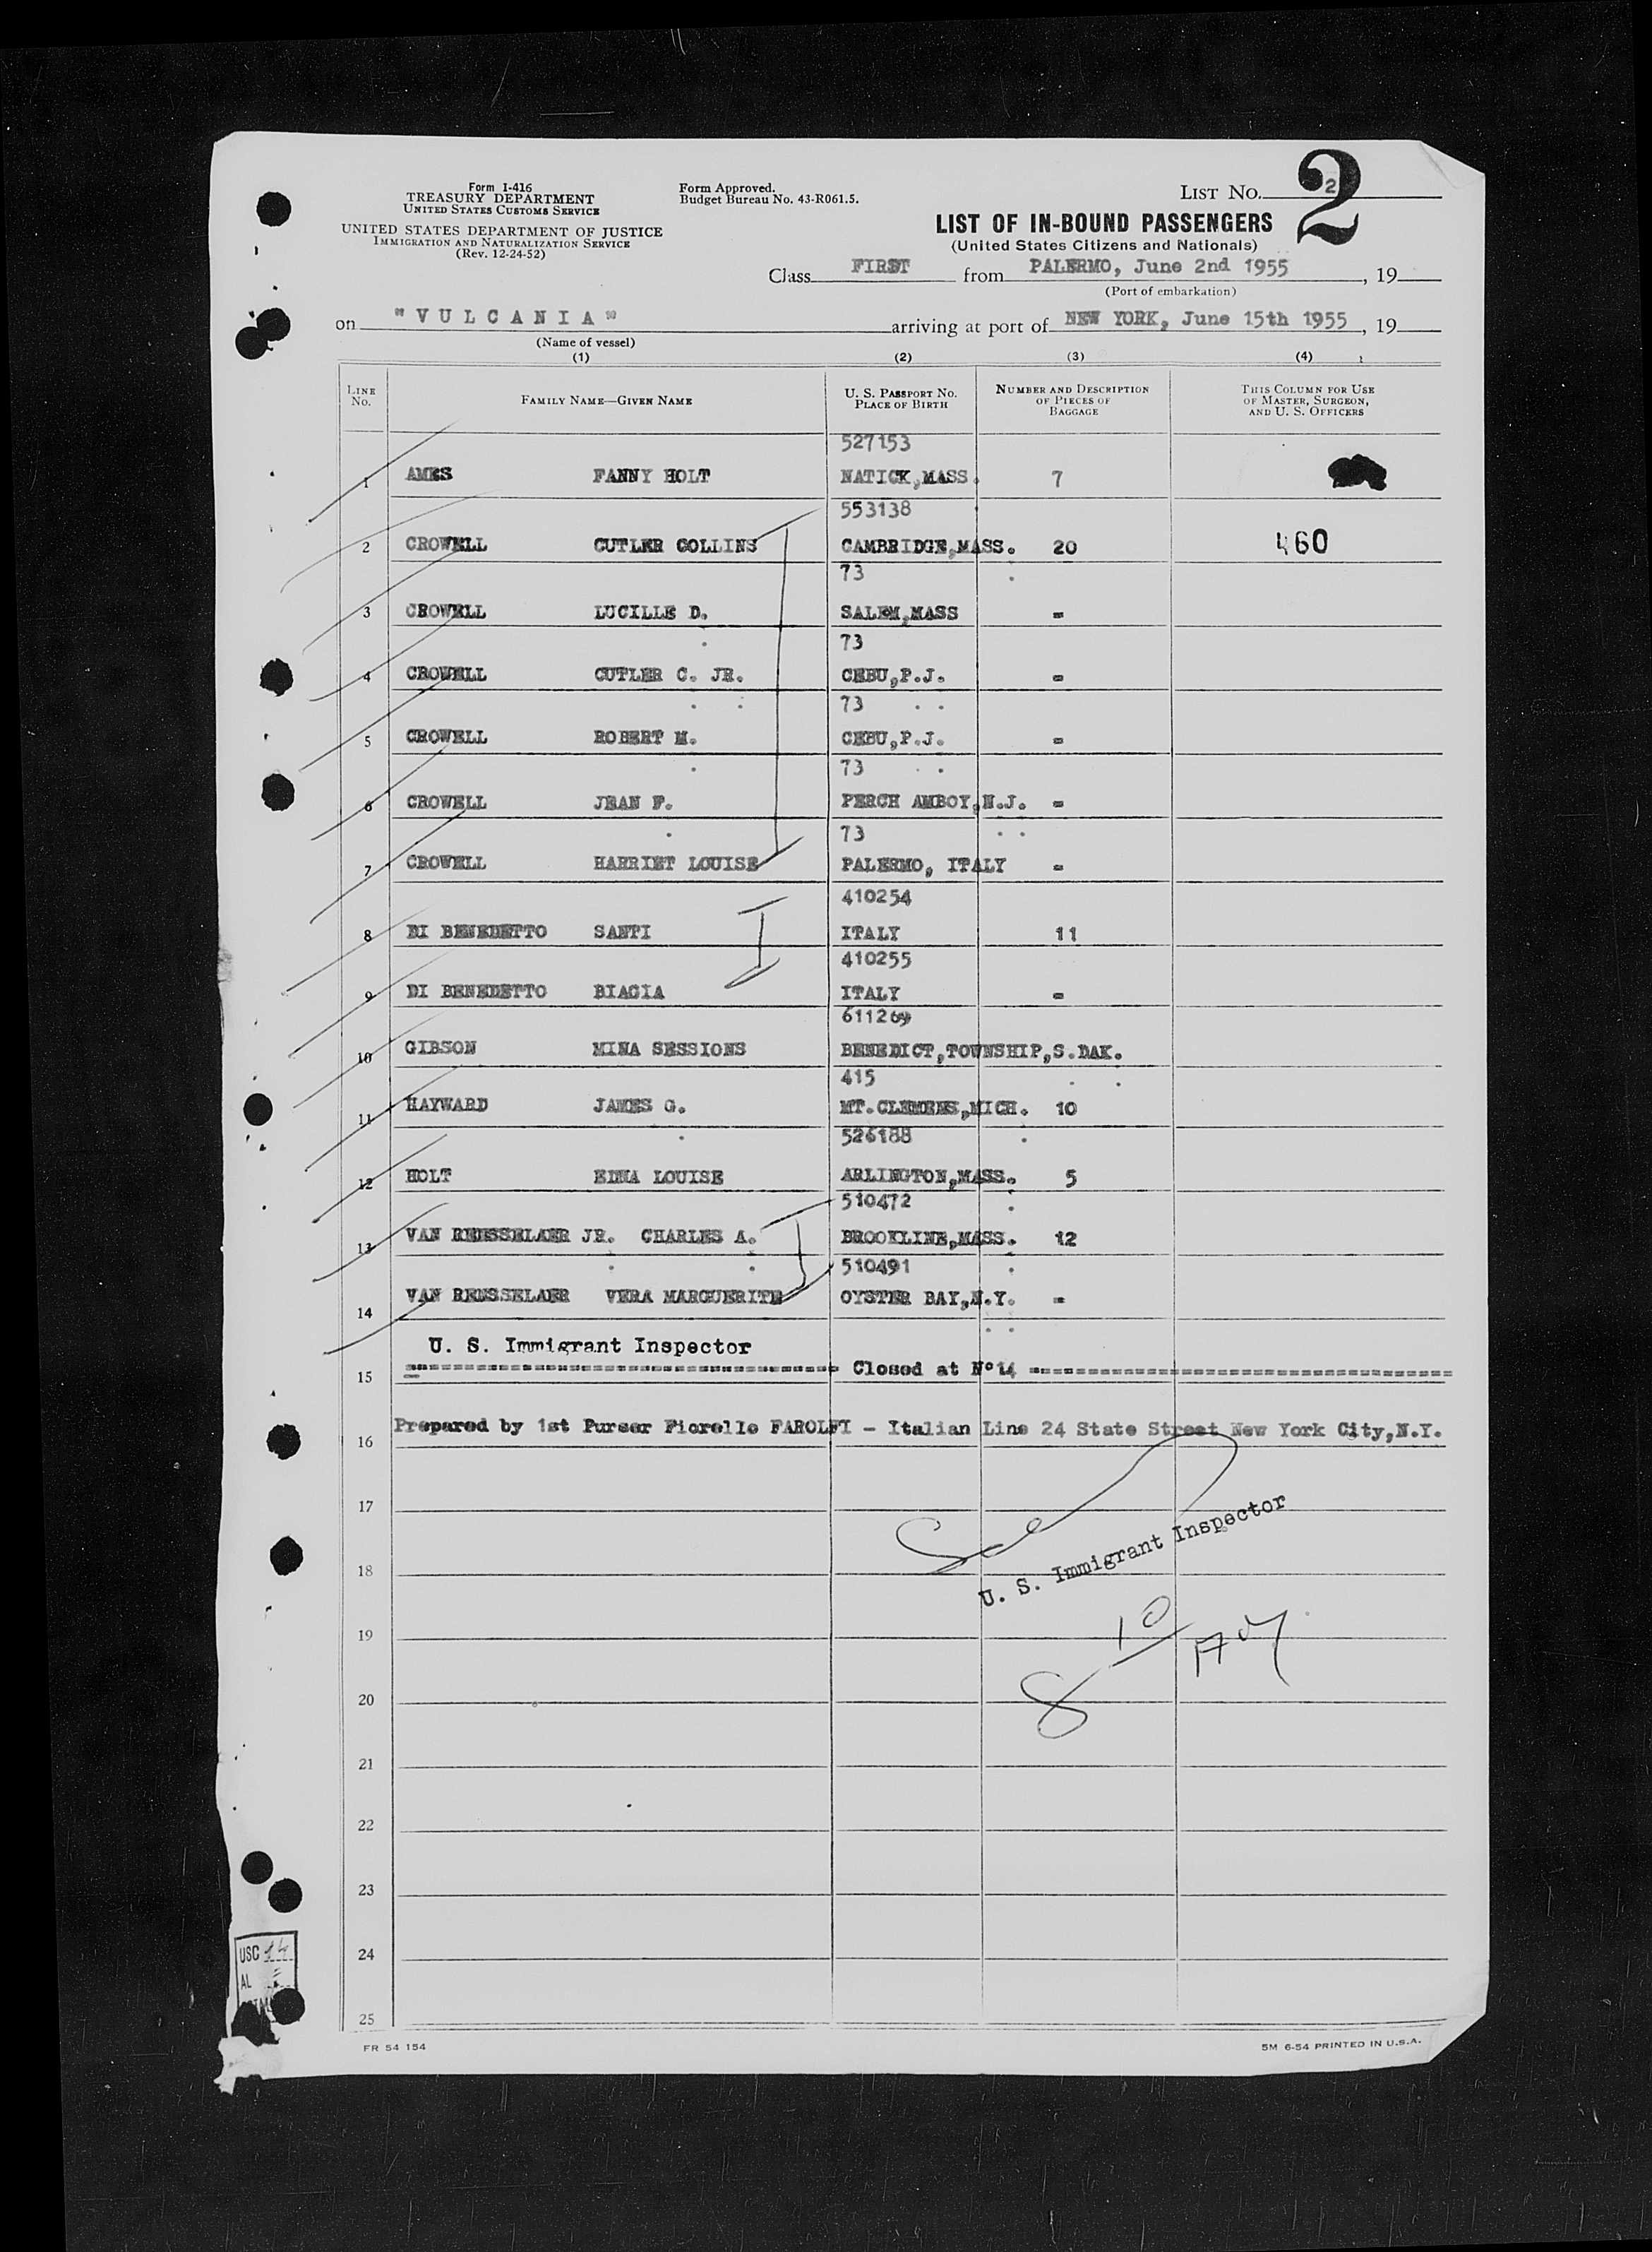 Form I-416
TREASURY DEPARTMENT
UNITED STATES CUSTOMS SERVICE
UNITED STATES DEPARTMENT OF JUSTICE
IMMIGRATION AND NATURALIZATION SERVICE
(Rev. 12-24-52)
Form Approved.
Budget Bureau No. 43-R061.5.
LIST NO. 2
2
LIST OF IN-BOUND PASSENGERS
(United States Citizens and Nationals)
Class FIRST from PALERMO, June 2nd 1955, 19
(Port of embarkation)
on "VULCANIA" arriving at port of NEW YORK, June 15th 1955, 19
(Name of vessel)
(1) (2) (3) (4)
LINE No. FAMILY NAME—GIVEN NAME U. S. PASSPORT NO. PLACE OF BIRTH NUMBER AND DESCRIPTION OF PIECES OF BAGGAGE THIS COLUMN FOR USE OF MASTER, SURGEON, AND U. S. OFFICERS
527153
1 AMES FANNY HOLT NATICK,MASS. 7
553138
2 CROWELL CUTLER COLLINS CAMBRIDGE,MASS. 20 460
73
3 CROWELL LUCILLE D. SALEM,MASS -
73
4 CROWELL CUTLER C. JR. CEBU,P.J. -
73
5 CROWELL ROBERT M. CEBU,P.J. -
73
6 CROWELL JEAN F. PERCH AMBOY,N.J. -
73
7 CROWELL HARRIET LOUISE PALERMO, ITALY -
410254
8 DI BENEDETTO SANTI ITALY 11
410255
9 DI BENEDETTO BIAGIA ITALY -
611269
10 GIBSON MINA SESSIONS BENEDICT,TOWNSHIP,S.DAK.
415
11 HAYWARD JAMES G. MT.CLEMENS,MICH. 10
526188
12 HOLT EDNA LOUISE ARLINGTON,MASS. 5
510472
13 VAN RENSSELAER JR. CHARLES A. BROOKLINE,MASS. 12
510491
14 VAN RENSSELAER VERA MARGUERITE OYSTER BAY,N.Y. -
U. S. Immigrant Inspector
15 Closed at N°14
16 Prepared by 1st Purser Fiorello FAROLFI - Italian Line 24 State Street New York City,N.Y.
17
U. S. Immigrant Inspector
18
19
10
8
20
21
22
23
USC 14
24
AL
25
FR 54 154
5M 6-54 PRINTED IN U.S.A.